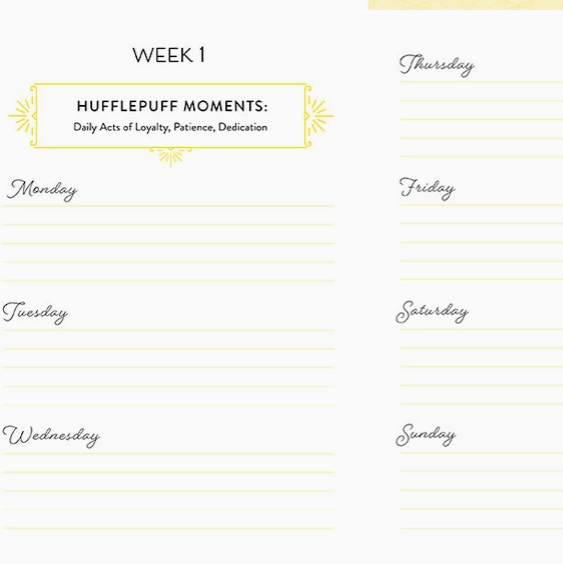 WEEK 1
HUFFLEPUFF MOMENTS:
Daily Acts of Loyalty, Patience, Dedication
Monday
Tuesday
Wednesday
Thursday
Friday
Saturday
Sunday